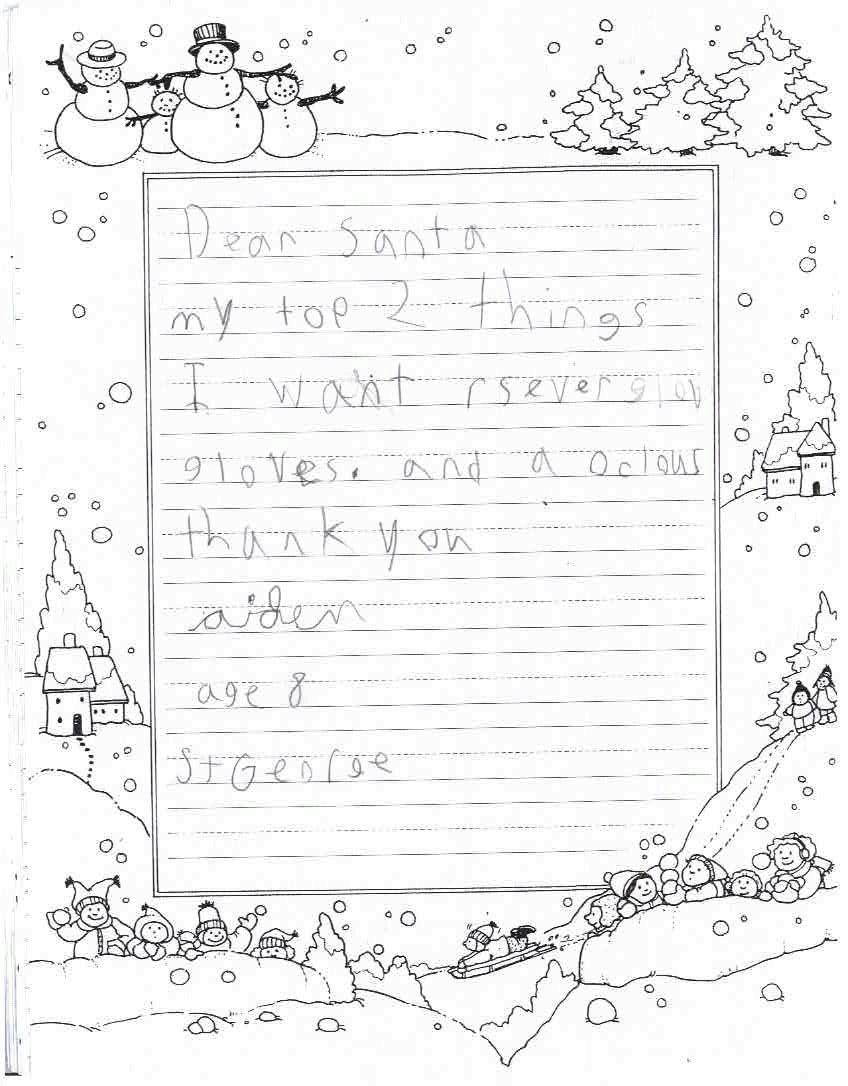 Dear Santa
my top 2 things
I want rsever glov
gloves. and a oclous
thank you
aiden
age 8
St George